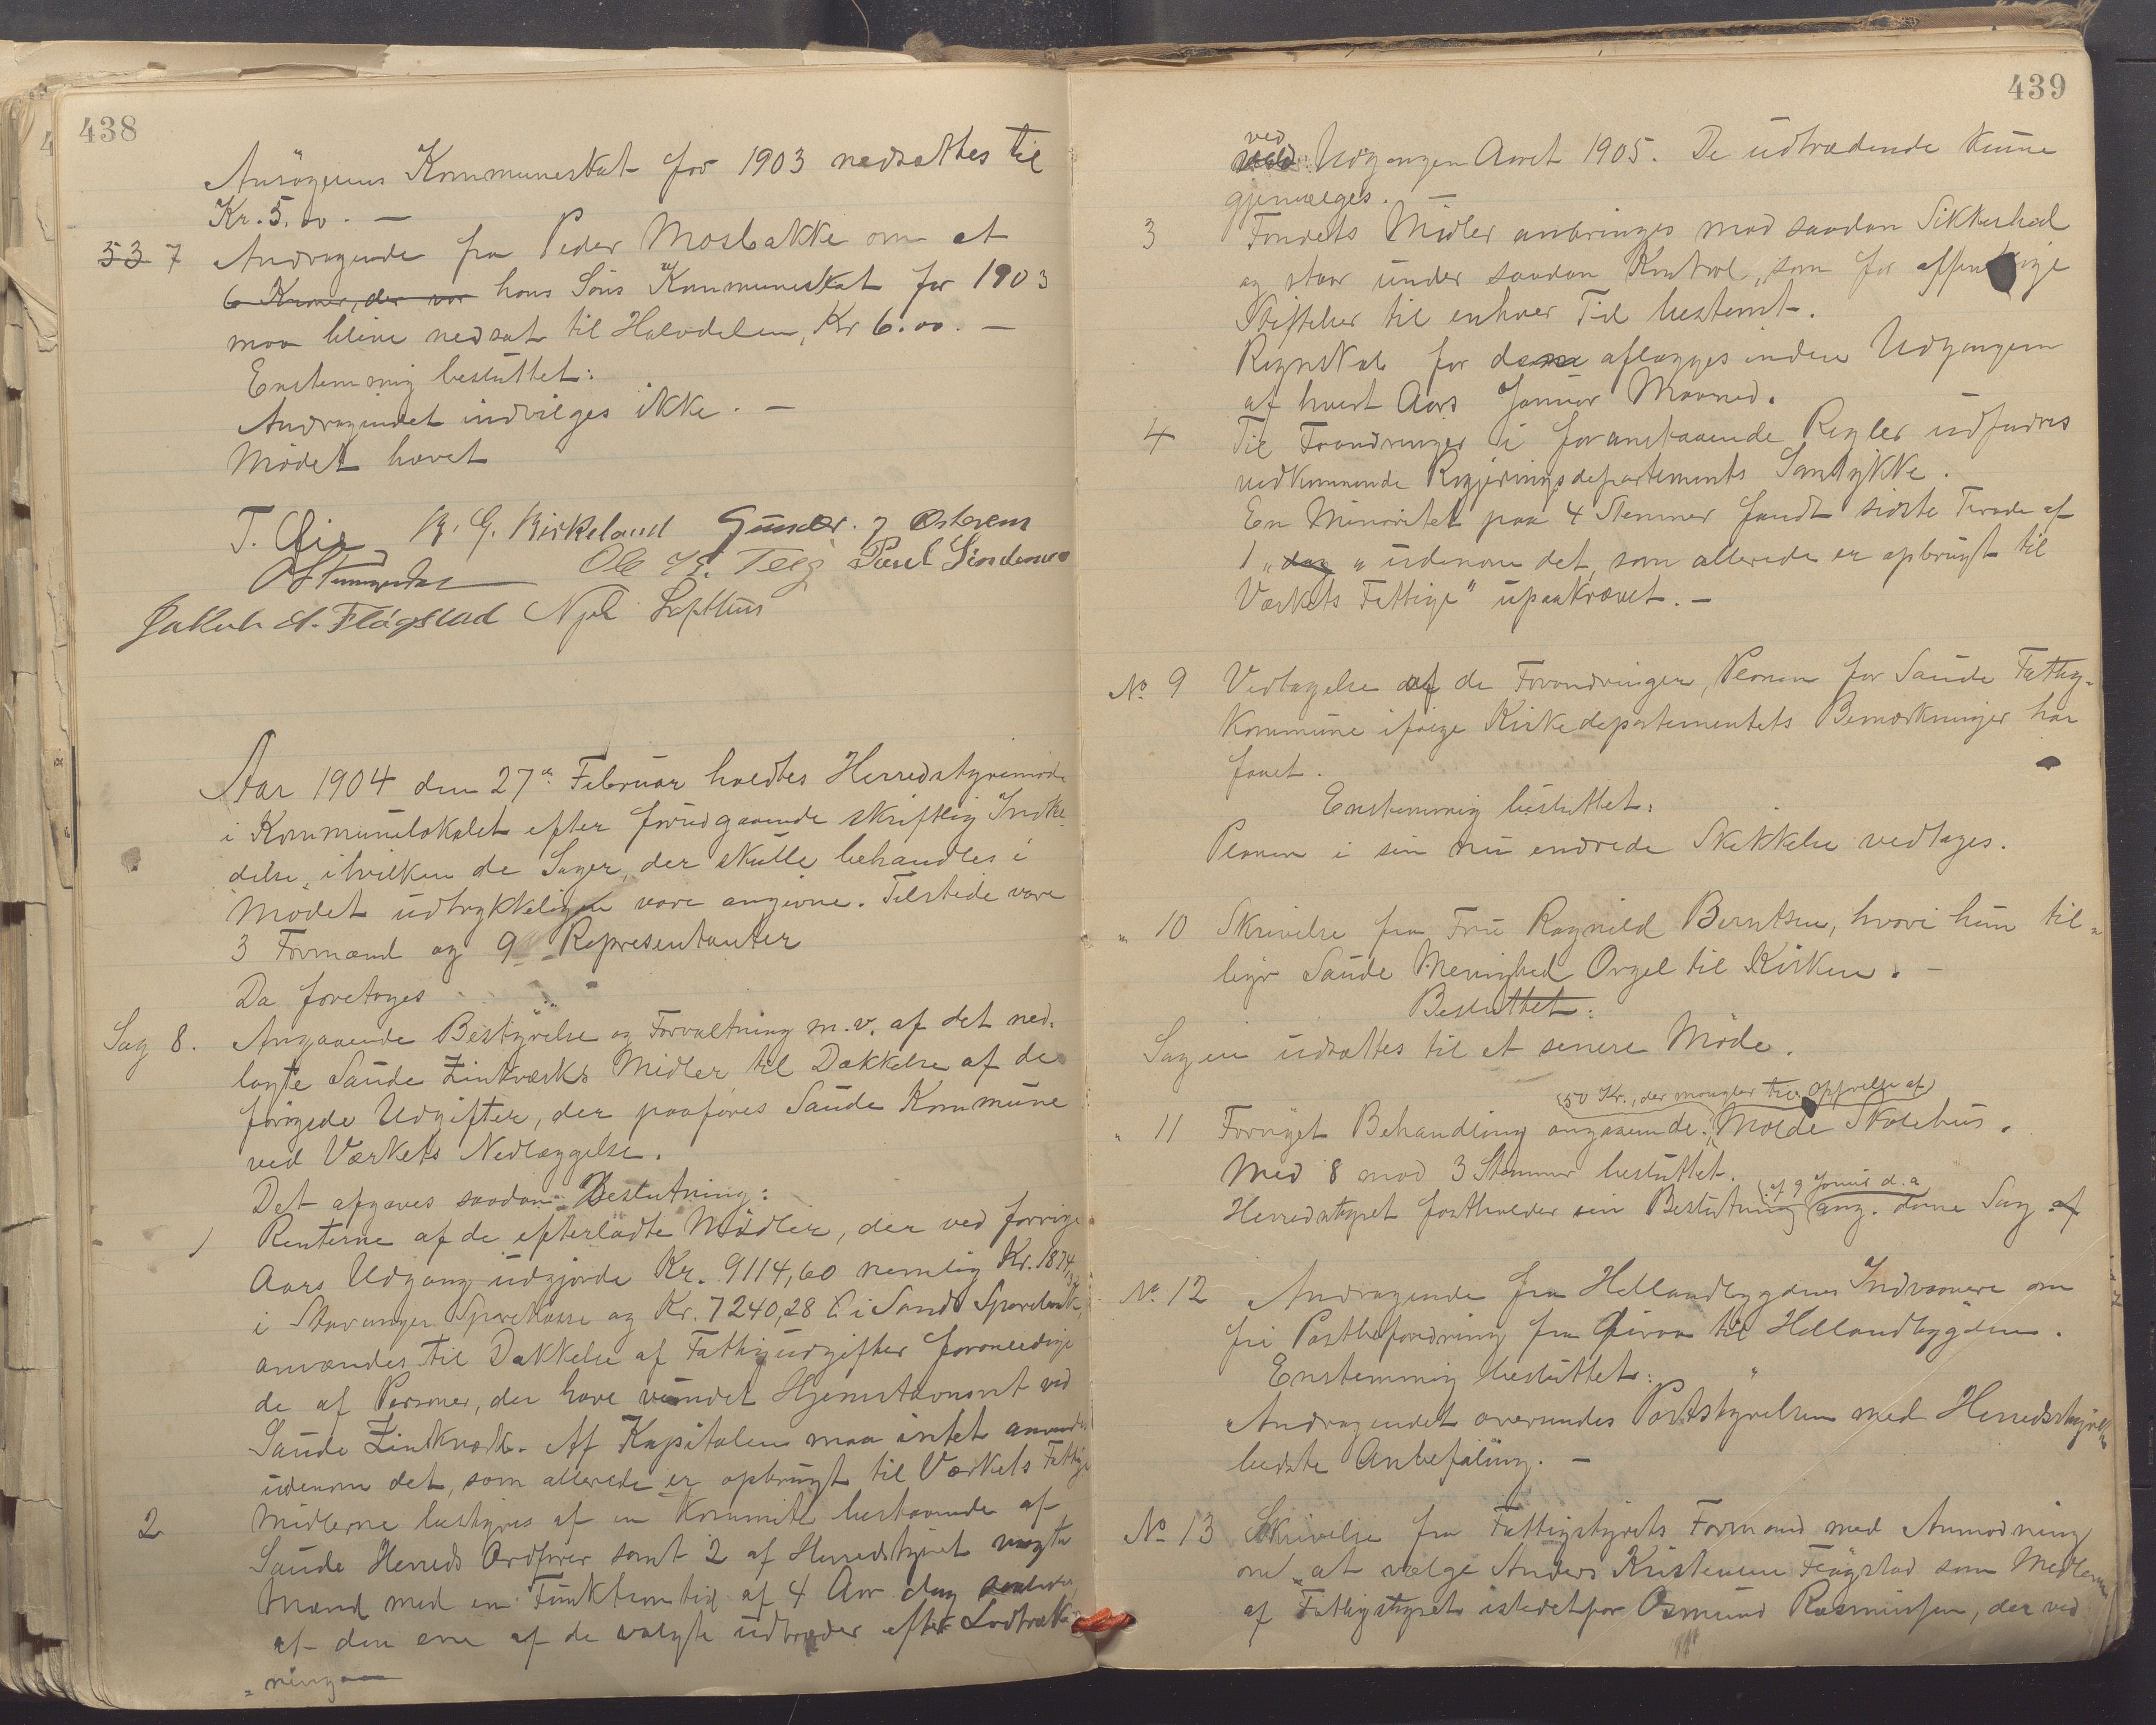 438
Ansøgerens Kommuneskat for 1903 nedsættes til
Kr. 5.00. —
53 7 Andragende fra Peder Mosbakke om at
6 Kroner, der var hans Søns Kommuneskat for 1903
maa blive nedsat til Halvdelen, Kr 6.00. —
Enstemmig besluttet:
Andragendet indvilges ikke. —
Mødet hævet
T. Øie R. G. Birkeland Gunder. J Østerem
Ole H. Telg Paul Lindemo
Jakob A. Fløgstad Njel Lofthus
Aar 1904 den 27de Februar holdtes Herredstyremøde
i Kommunelokalet efter forudgaaende skriftlig Indke-
delse, i hvilken de Sager, der skulle behandles i
Mødet udtrykkeligen vare angivne. Tilstede vare
3 Formænd og 9 Repræsentanter
Da foretoges
Sag 8. Angaaende Bestyrelse og Forvaltning m.v. af det ned-
lagte Saude Zinkværks Midler til Dækkelse af de
forøgede Udgifter, der paaføres Saude Kommune
ved Værkets Nedlæggelse.
Det afgaves saadan Beslutning:
1 Renterne af de efterladte Midler, der ved forrige
Aars Udgang udgjorde Kr. 9114,60 nemlig Kr. 1874,32
i Stavanger Sparekasse og Kr. 7240,28 i Sands Sparebank,
anvendes til Dækkelse af Fattigudgifter foranledige
de af Personer, der have vundet Hjemstavnsret ved
Saude Zinkværk. Af Kapitalen maa intet anvendes
udenom det, som allerede er opbrugt til Værkets Fattige
2 Midlerne bestyres af en Komite bestaaende af
Saude Herreds Ordfører samt 2 af Herredstyret valgte
Mænd med en Funktionstid af 4 Aar dog saaledes,
at den ene af de valgte udtræder efter Lodtræk-
ning
439
ved
ved Udgangen Aaret 1905. De udtrædende kunne
gjenvælges.
3 Fondets Midler anbringes mod saadan Sikkerhed
og staar under saadan Kontrol, som for offentlige
Stiftelser til enhver Tid bestemt.
Regnskab for dem aflægges inden Udgangen
af hvert Aars Januar Maaned.
4 Til Forandringer i foranstaaende Regler udfordres
vedkommende Regjeringsdepartements Samtykke.
En Minoritet paa 4 Stemmer fandt sidste Tirade af
1 "dog" "udenom det, som allerede er opbrugt til
Værkets Fattige" upaakrævet. —
No 9 Vedtagelse af de Forandringer, Planen for Saude Fattig-
kommune ifølge Kirkedepartementets Bemærkninger har
faaet.
Enstemmig besluttet:
Planen i sin nu endrede Skikkelse vedtages.
" 10 Skrivelse fra Fru Ragnild Berntsen, hvori hun til-
byr Saude Menighed Orgel til Kirken. —
Besluttet:
Sagen udsættes til et senere Møde.
(50 Kr., der mangler til Opførelse af)
" 11 Fornyet Behandling angaaende Molde Skolehus.
Med 8 mod 3 Stemmer besluttet.
(af 9 Januar d.a.
Herredstyret fastholder sin Beslutning ang. denne Sag af
No. 12 Andragende fra Hellandbygdens Indvaanere om
fri Postbefordring fra Øivaa til Hellandbygden.
Enstemmig besluttet:
Andragendet oversendes Poststyrelsen med Herredsstyrets
bedste Anbefaling. —
No 13 Skrivelse fra Fattigstyrets Formand med Anmodning
om at vælge Anders Kristensen Fløgstad som Medlem
af Fattigstyret istedetfor Osmund Rasmussen, der ved